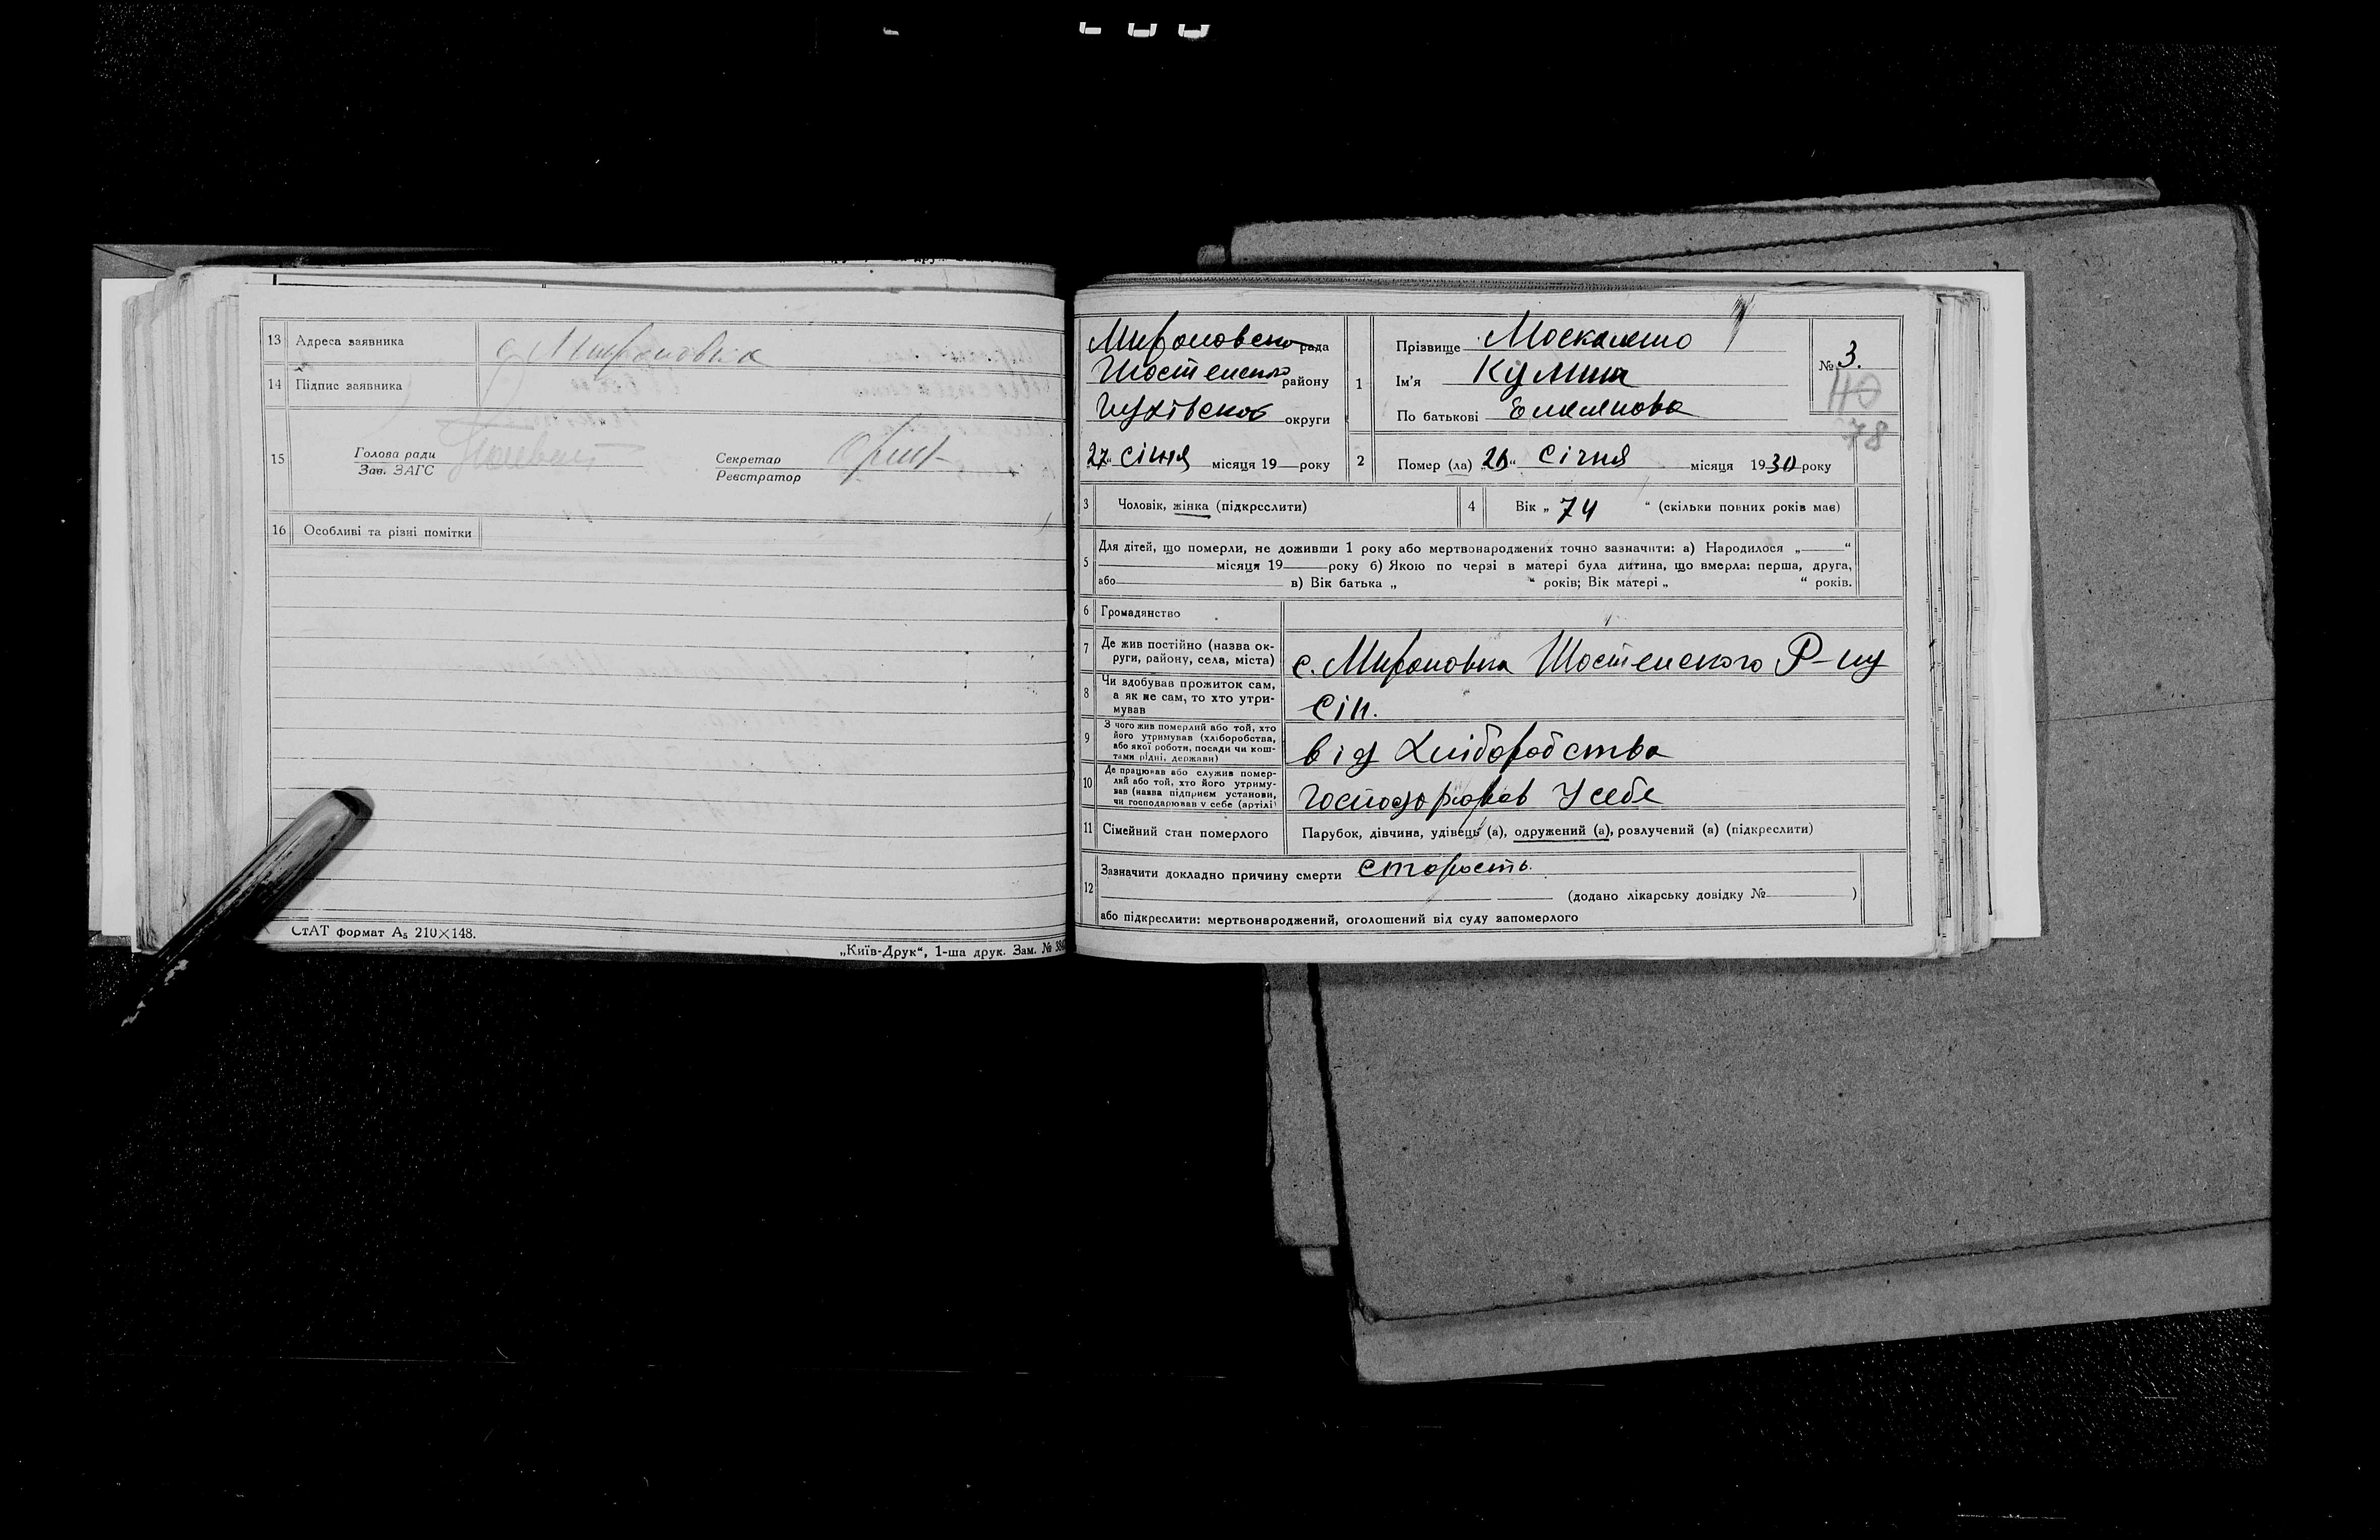 13 Адреса заявника с Мироновка
14 Підпис заявника
15 Голова ради
Зав. ЗАГС
Секретар
Реєстратор
16 Особливі та різні помітки
СтАТ формат А₅ 210×148.
„Київ-Друк“, 1-ша друк. Зам. №
Мироновско рада
Шостенсько району
Глухівськоє округи
„27“ Січня місяця 19 року
1 Прізвище Москаленко
Ім'я Кулина
По батькові Емелянова
№ 3.
40
78
2 Помер (ла) „26“ Січня місяця 1930 року
3 Чоловік, жінка (підкреслити)
4 Вік „ 74 “ (скільки повних років має)
5 Для дітей, що померли, не доживши 1 року або мертвонароджених точно зазначити: а) Народилося „ “
місяця 19 року б) Якою по черзі в матері була дитина, що вмерла: перша, друга,
або в) Вік батька „ “ років; Вік матері „ “ років.
6 Громадянство
7 Де жив постійно (назва ок-
руги, району, села, міста)
с. Мироновка Шостенского Р-ну
8 Чи здобував прожиток сам,
а як не сам, то хто утри-
мував
Сін.
9 З чого жив померлий або той, хто
його утримував (хліборобства,
або якої роботи, посади чи кош-
тами рідні, держави)
від Хліборобства
10 Де працював або служив помер-
лий або той, хто його утриму-
вав (назва підприєм установи,
чи господарював у себе (артілі)
Господорював У себе
11 Сімейний стан померлого Парубок, дівчина, удівець (а), одружений (а), розлучений (а) (підкреслити)
12 Зазначити докладно причину смерти старость.
(додано лікарську довідку № )
або підкреслити: мертвонароджений, оголошений від суду запомерлого